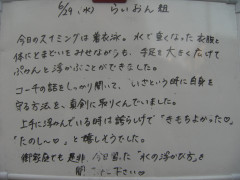 6/29(水) らいおん組
今日のスイミングは着衣泳。水で重くなった衣類と
体にとまどいをみせながらも、手足を大きくひろげて
ぷかんと浮かぶことができました。
コーチの話をしっかり聞いて、いざという時に自身を
守る方法を、真剣に取りくんでいました。
上手に浮かんでいる時は誇らしげで"きもちよかった♡"
"たのしい〜♡"と嬉しそうでした。
御家庭でも是非、今日習った"水の浮かび方"を
聞 下さい♡